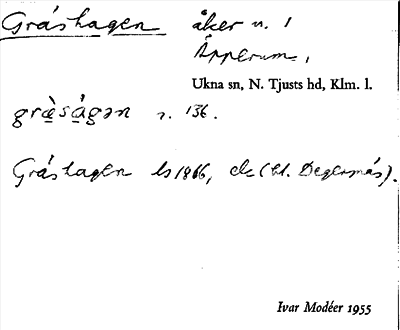 Gráshagen åker n. 1
Äpperum,
Ukna sn, N. Tjusts hd, Klm. l.
græ̀sågən n. 136.
Gráshagen ls 1866, (bl. Degernäs).
Ivar Modéer 1955